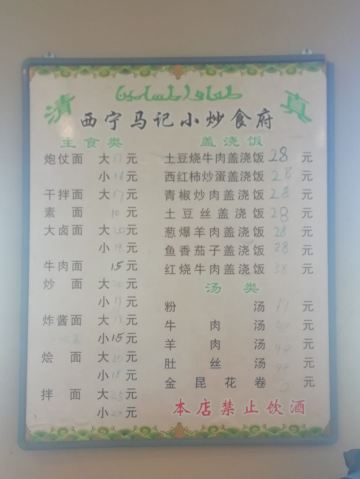 清 真
西宁马记小炒食府
主食类
炮仗面 大 17 元
小 元
干拌面 大 17 元
素面 10 元
大卤面 大 元
小 元
牛肉面 15 元
炒面 大 元
小 17 元
炸酱面 大 元
小 15 元
烩面 大 元
小 元
拌面 大 元
小 元
盖浇饭
土豆烧牛肉盖浇饭 28 元
西红柿炒蛋盖浇饭 28 元
青椒炒肉盖浇饭 28 元
土豆丝盖浇饭 28 元
葱爆羊肉盖浇饭 元
鱼香茄子盖浇饭 元
红烧牛肉盖浇饭 元
汤类
粉汤 17 元
牛肉汤 元
羊肉汤 元
肚丝汤 元
金昆花卷 元
本店禁止饮酒